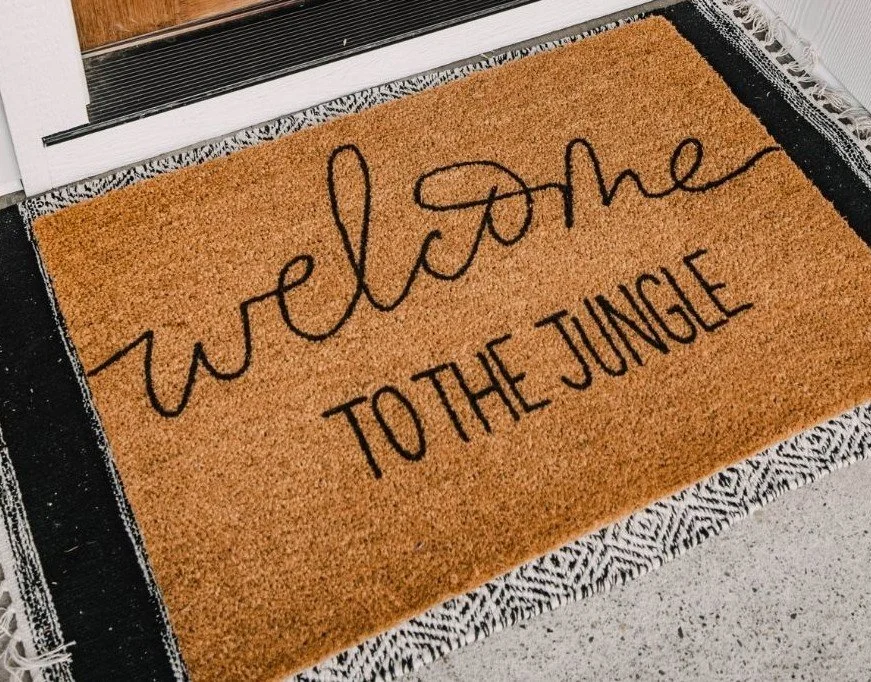 welcome
TO THE JUNGLE